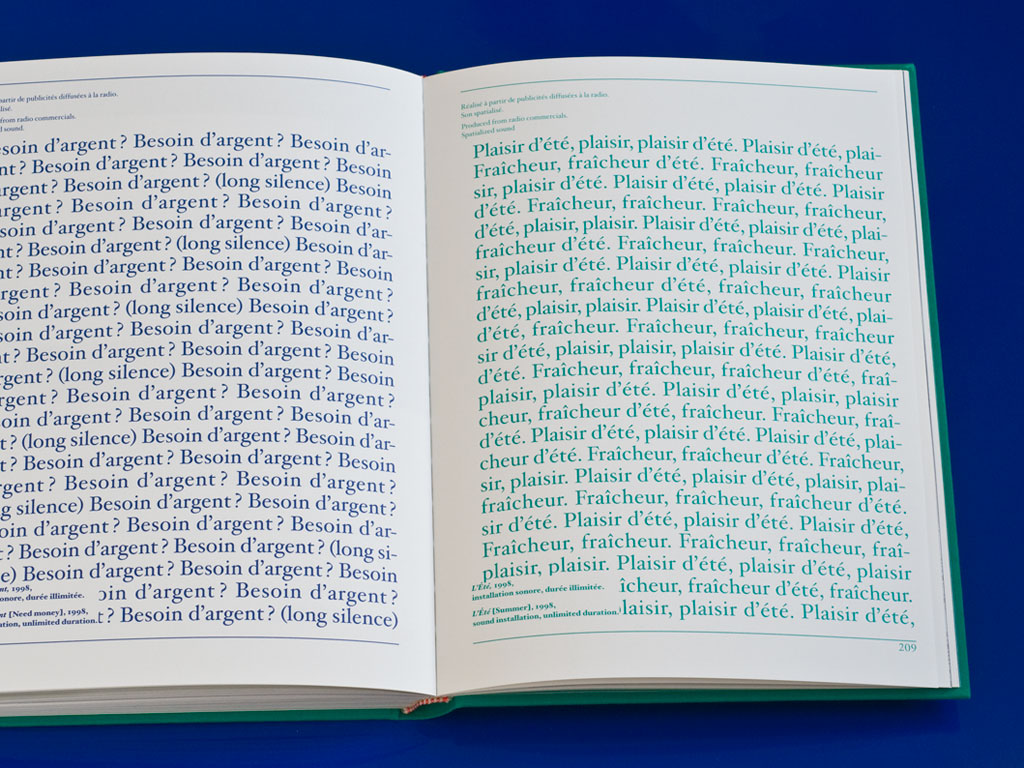 partir de publicités diffusées à la radio.
from radio commercials.
sound.
d'argent ? Besoin d'argent ? Besoin d'ar-
? Besoin d'argent ? Besoin d'argent ? Besoin
? Besoin d'argent ? (long silence) Besoin
? Besoin d'argent ? Besoin d'argent ?
d'argent ? Besoin d'argent ? Besoin d'ar-
? Besoin d'argent ? (long silence) Besoin d'ar-
? Besoin d'argent ? Besoin d'argent ? Besoin
? Besoin d'argent ? Besoin d'argent ?
d'argent ? (long silence) Besoin d'argent ?
d'argent ? Besoin d'argent ? Besoin d'ar-
? Besoin d'argent ? Besoin d'argent ? Besoin
? (long silence) Besoin d'argent ? Besoin
? Besoin d'argent ? Besoin d'argent ?
d'argent ? Besoin d'argent ? Besoin d'ar-
? (long silence) Besoin d'argent ? Besoin d'ar-
? Besoin d'argent ? Besoin d'argent ? Besoin
? Besoin d'argent ? Besoin d'argent ?
silence) Besoin d'argent ? Besoin d'argent ?
d'argent ? Besoin d'argent ? Besoin d'ar-
? Besoin d'argent ? Besoin d'argent ? (long si-
Besoin d'argent ? Besoin d'argent ? Besoin
d'argent ? Besoin d'argent ?
? Besoin d'argent ? (long silence)
1998,
sonore, durée illimitée.
[Need money], 1998,
unlimited duration.
Réalisé à partir de publicités diffusées à la radio.
Son spatialisé.
Produced from radio commercials.
Spatialized sound
Plaisir d'été, plaisir, plaisir d'été. Plaisir d'été, plai-
Fraîcheur, fraîcheur d'été. Fraîcheur, fraîcheur
sir, plaisir d'été. Plaisir d'été, plaisir d'été. Plaisir
d'été. Fraîcheur, fraîcheur. Fraîcheur, fraîcheur,
d'été, plaisir, plaisir. Plaisir d'été, plaisir d'été, plai-
fraîcheur d'été. Fraîcheur, fraîcheur. Fraîcheur,
sir, plaisir d'été. Plaisir d'été, plaisir d'été. Plaisir
fraîcheur, fraîcheur d'été, fraîcheur, fraîcheur
d'été, plaisir, plaisir. Plaisir d'été, plaisir d'été, plai-
d'été, fraîcheur. Fraîcheur, fraîcheur, fraîcheur
sir d'été, plaisir, plaisir, plaisir d'été. Plaisir d'été,
d'été. Fraîcheur, fraîcheur, fraîcheur d'été, fraî-
plaisir, plaisir d'été. Plaisir d'été, plaisir, plaisir
cheur, fraîcheur d'été, fraîcheur. Fraîcheur, fraî-
d'été. Plaisir d'été, plaisir d'été. Plaisir d'été, plai-
cheur d'été. Fraîcheur, fraîcheur d'été. Fraîcheur,
sir, plaisir. Plaisir d'été, plaisir d'été, plaisir, plai-
fraîcheur. Fraîcheur, fraîcheur, fraîcheur d'été.
sir d'été. Plaisir d'été, plaisir d'été. Plaisir d'été,
Fraîcheur, fraîcheur. Fraîcheur, fraîcheur, fraî-
plaisir, plaisir. Plaisir d'été, plaisir d'été, plaisir
îcheur, fraîcheur d'été, fraîcheur.
laisir, plaisir d'été. Plaisir d'été,
L'Été, 1998,
installation sonore, durée illimitée.
L'Été [Summer], 1998,
sound installation, unlimited duration.
209